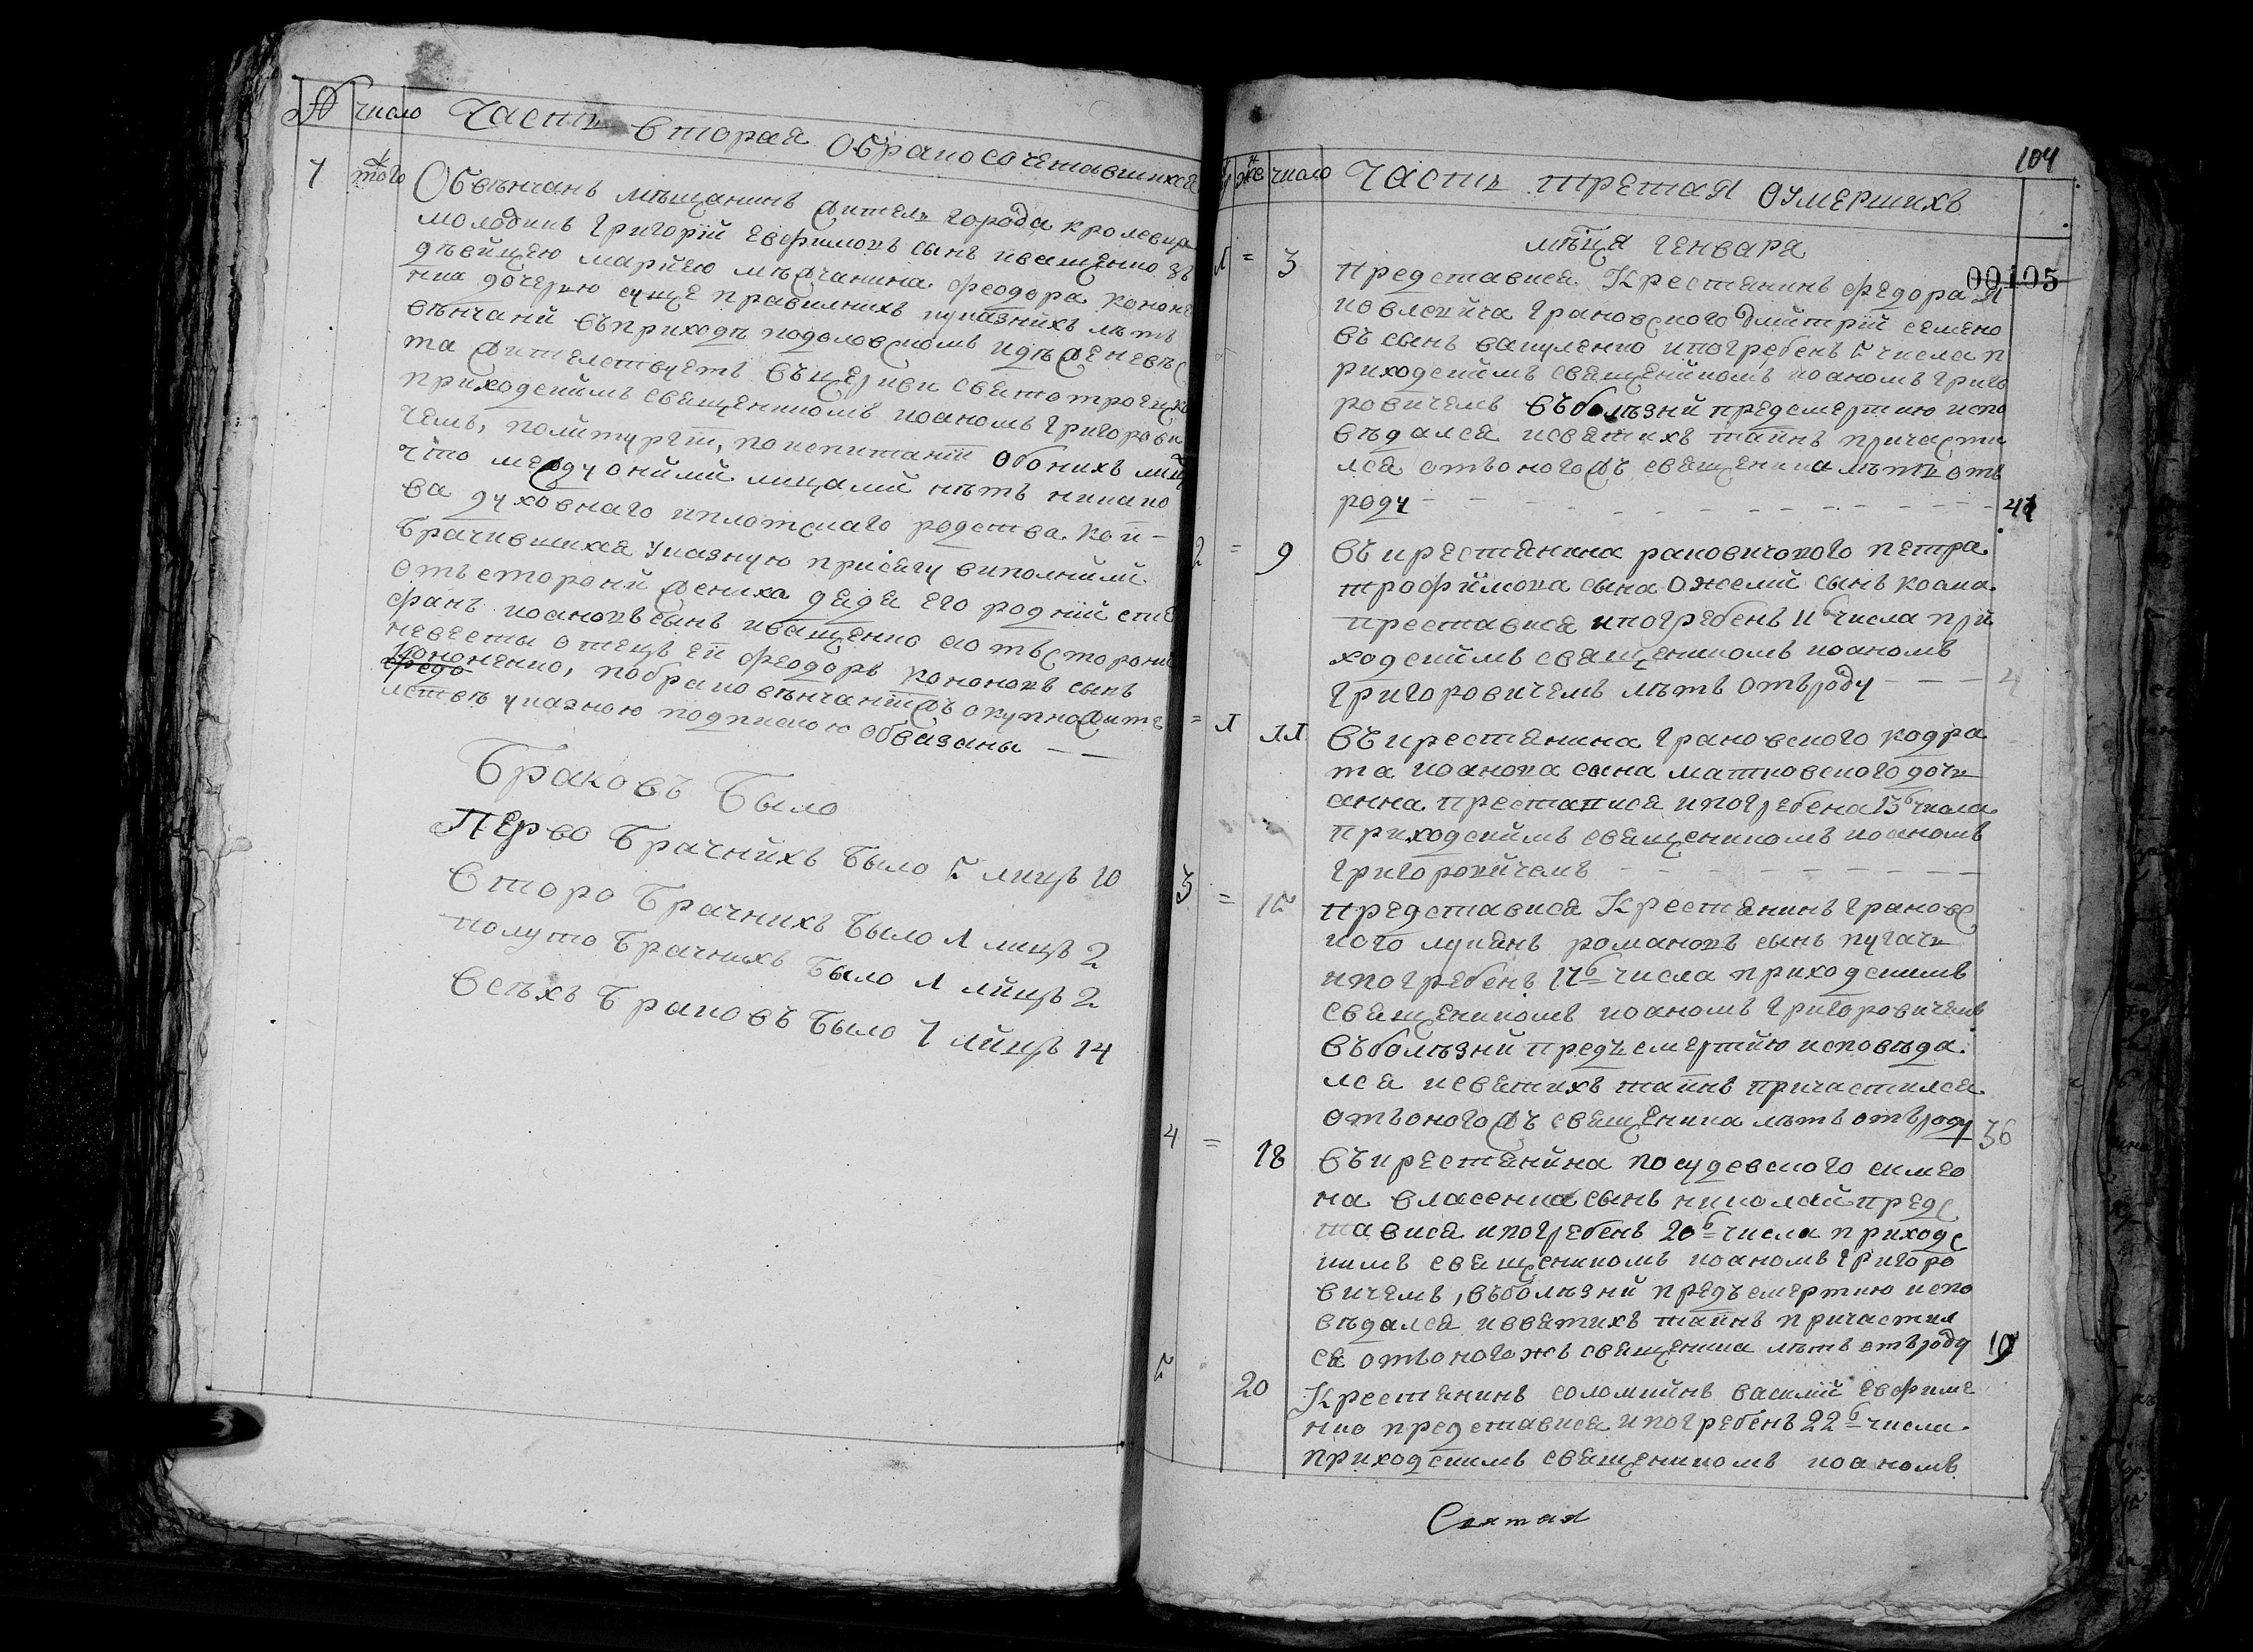 № число Часть вторая О бракосочетавшихся
7 того Обвѣнчанъ мѣщанинъ житель города кролевца
молодикъ григорій евфимовъ сынъ иващенко зъ
дѣвицею маріею мѣщанина феодора кононе
нка дочерию суще правилнихъ иуказнихъ лѣтъ
вѣнчани въприходѣ подоловскомъ идѣ женевѣс
та жителствуетъ въцеркви святотроецко
приходскимъ священникомъ иоаномъ григорови
чемъ, политургіи, поиспитаніи обоихъ лиц
что между онйми лицамй нѣтъ никако
ва духовнаго иплотскаго родства. кой
брачившихся указную присягу виполнйлй
отъ сторони жениха дядя его роднйй сте
фанъ иоановъ сынъ иващенко аотъ сторони
невести отецъ ей феодоръ кононовъ сынъ
Кононенко, побраковѣнчаніижъ окупножите
лствѣ указною подпискою обвязаны
Браковъ Было
Перво Брачнихъ Было 5 лицъ 10
Второ Брачнихъ Было 1 лицъ 2
полуто Брачнихъ Было 1 лйцъ 2
Всѣхъ Браковъ Было 7 лйцъ 14
104
число Часть третая Oумершихъ
мѣсяца генвара
00105
1 = 3 Представися Крестянинъ федора Я
ковлевича грановского дмитрій семено
въ сынъ вакуленко ипогребенъ 5 числа п
риходскимъ священникомъ иоаномъ григо
ровичемъ въболѣзни предсмертию испо
вѣдался исвятихъ тайнъ причасти
лся отъоногожъ священника лѣтъ отъ
роду 41
2 = 9 въкрестянина раковичокого петра
трофймова сына Ожелй сынъ козма
преставися ипогребенъ 11 числа при
ходскимъ священникомъ иоаномъ
григоровичемъ лѣтъ отъроду 4
= 1 11 въкрестянина грановского кодра
та иоанова сына матковского дочь
анна преставися ипогребена 13 числа
приходскимъ священникомъ иоаномъ
григоровйчемъ
3 = 15 представися Крестянинъ грановс
кого лукянъ романовъ сынъ пугачь
ипогребенъ 17 числа приходскимъ
священникомъ иоаномъ григоровичемъ
въболѣзнй предъ смертйю исповѣда
лся исвятихъ тайнъ причастился
отъоногожъ священика лѣтъ отъроду 36
4 = 18 въкрестянйна посудевского симео
на власенка сынъ николай предс
тавися ипогребенъ 20 числа приходс
кимъ священикомъ иоаномъ григоро
вичемъ, въболѣзнй предъ смертию испо
вѣдался исвятихъ тайнъ причастил
ся отъоногожъ священика лѣтъ отъроду 19
5 20 Крестянинъ соломийнъ василій евфиме
нко представися ипогребенъ 22 числа
приходскимъ священикомъ иоаномъ